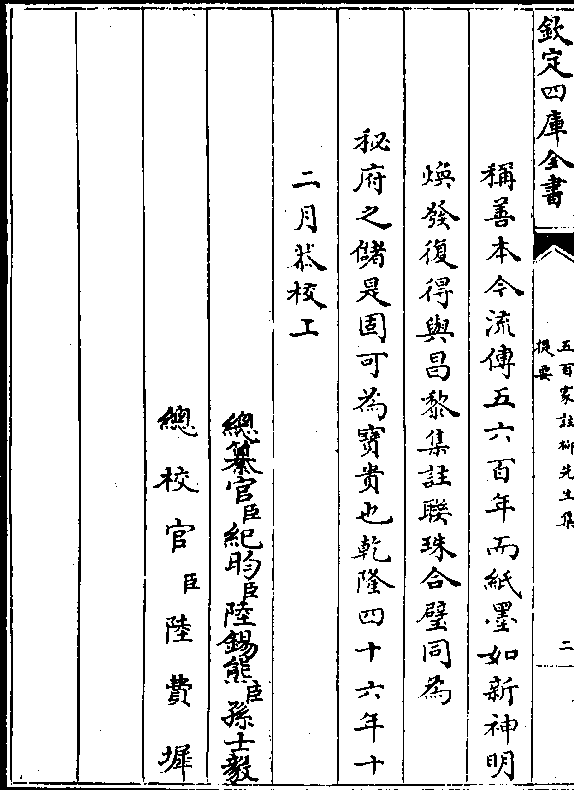 欽定四庫全書
五百家註柳先生集
提要
二
稱善本今流傳五六百年而紙墨如新神明
煥發復得與昌黎集註聯珠合璧同為
秘府之儲是固可為寶貴也乾隆四十六年十
二月恭校上
總纂官臣紀昀臣陸錫熊臣孫士毅
總校官臣陸費墀